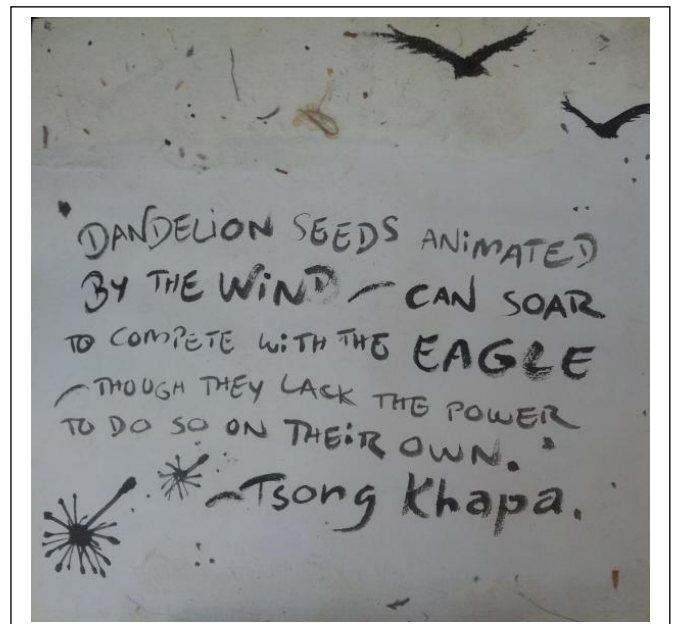 "DANDELiON SEEDS ANiMATED
BY THE WiND ~ CAN SOAR
TO COMPETE WiTH THE EAGLE
~ THOUGH THEY LACK THE POWER
TO DO SO ON THEiR OWN."
~Tsong Khapa.